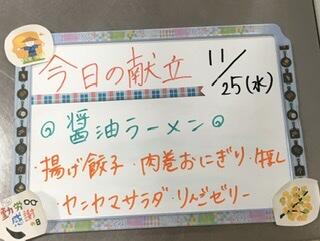 今日の献立
11/25(水)
◎醤油ラーメン◎
・揚げ餃子・肉巻おにぎり・蒸し
・ヤンヤマサラダ・りんごゼリー
勤労
感謝
の日